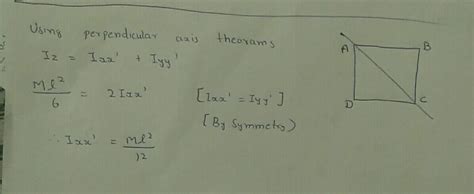 Using perpendicular axis theorams
Iz = Ixx' + Iyy'
Ml²/6 = 2Ixx' [Ixx' = Iyy']
[By Symmetry)
∴ Ixx' = Ml²/12
A B
D C